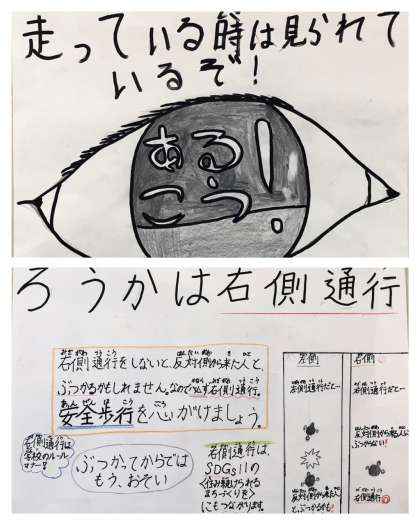 走っている時は見られて
いるぞ!
あるこう!
ろうかは右側通行
右側通行をしないと、反対側から来た人と、
ぶつかるかもしれません。なので必ず右側通行。
安全歩行を心がけましょう。
右側通行は
学校のルール
マナー!!
ぶつかってからでは
もう、おそい
右側通行は、
SDGs11の
<住み続けられる
まちづくりを>
にもつながります
左側
右側通行だと…
反対側から来た人
とぶつかるかも!
右側
右側通行だと…
反対側から来た人に
ぶつからない!
右側通行◎